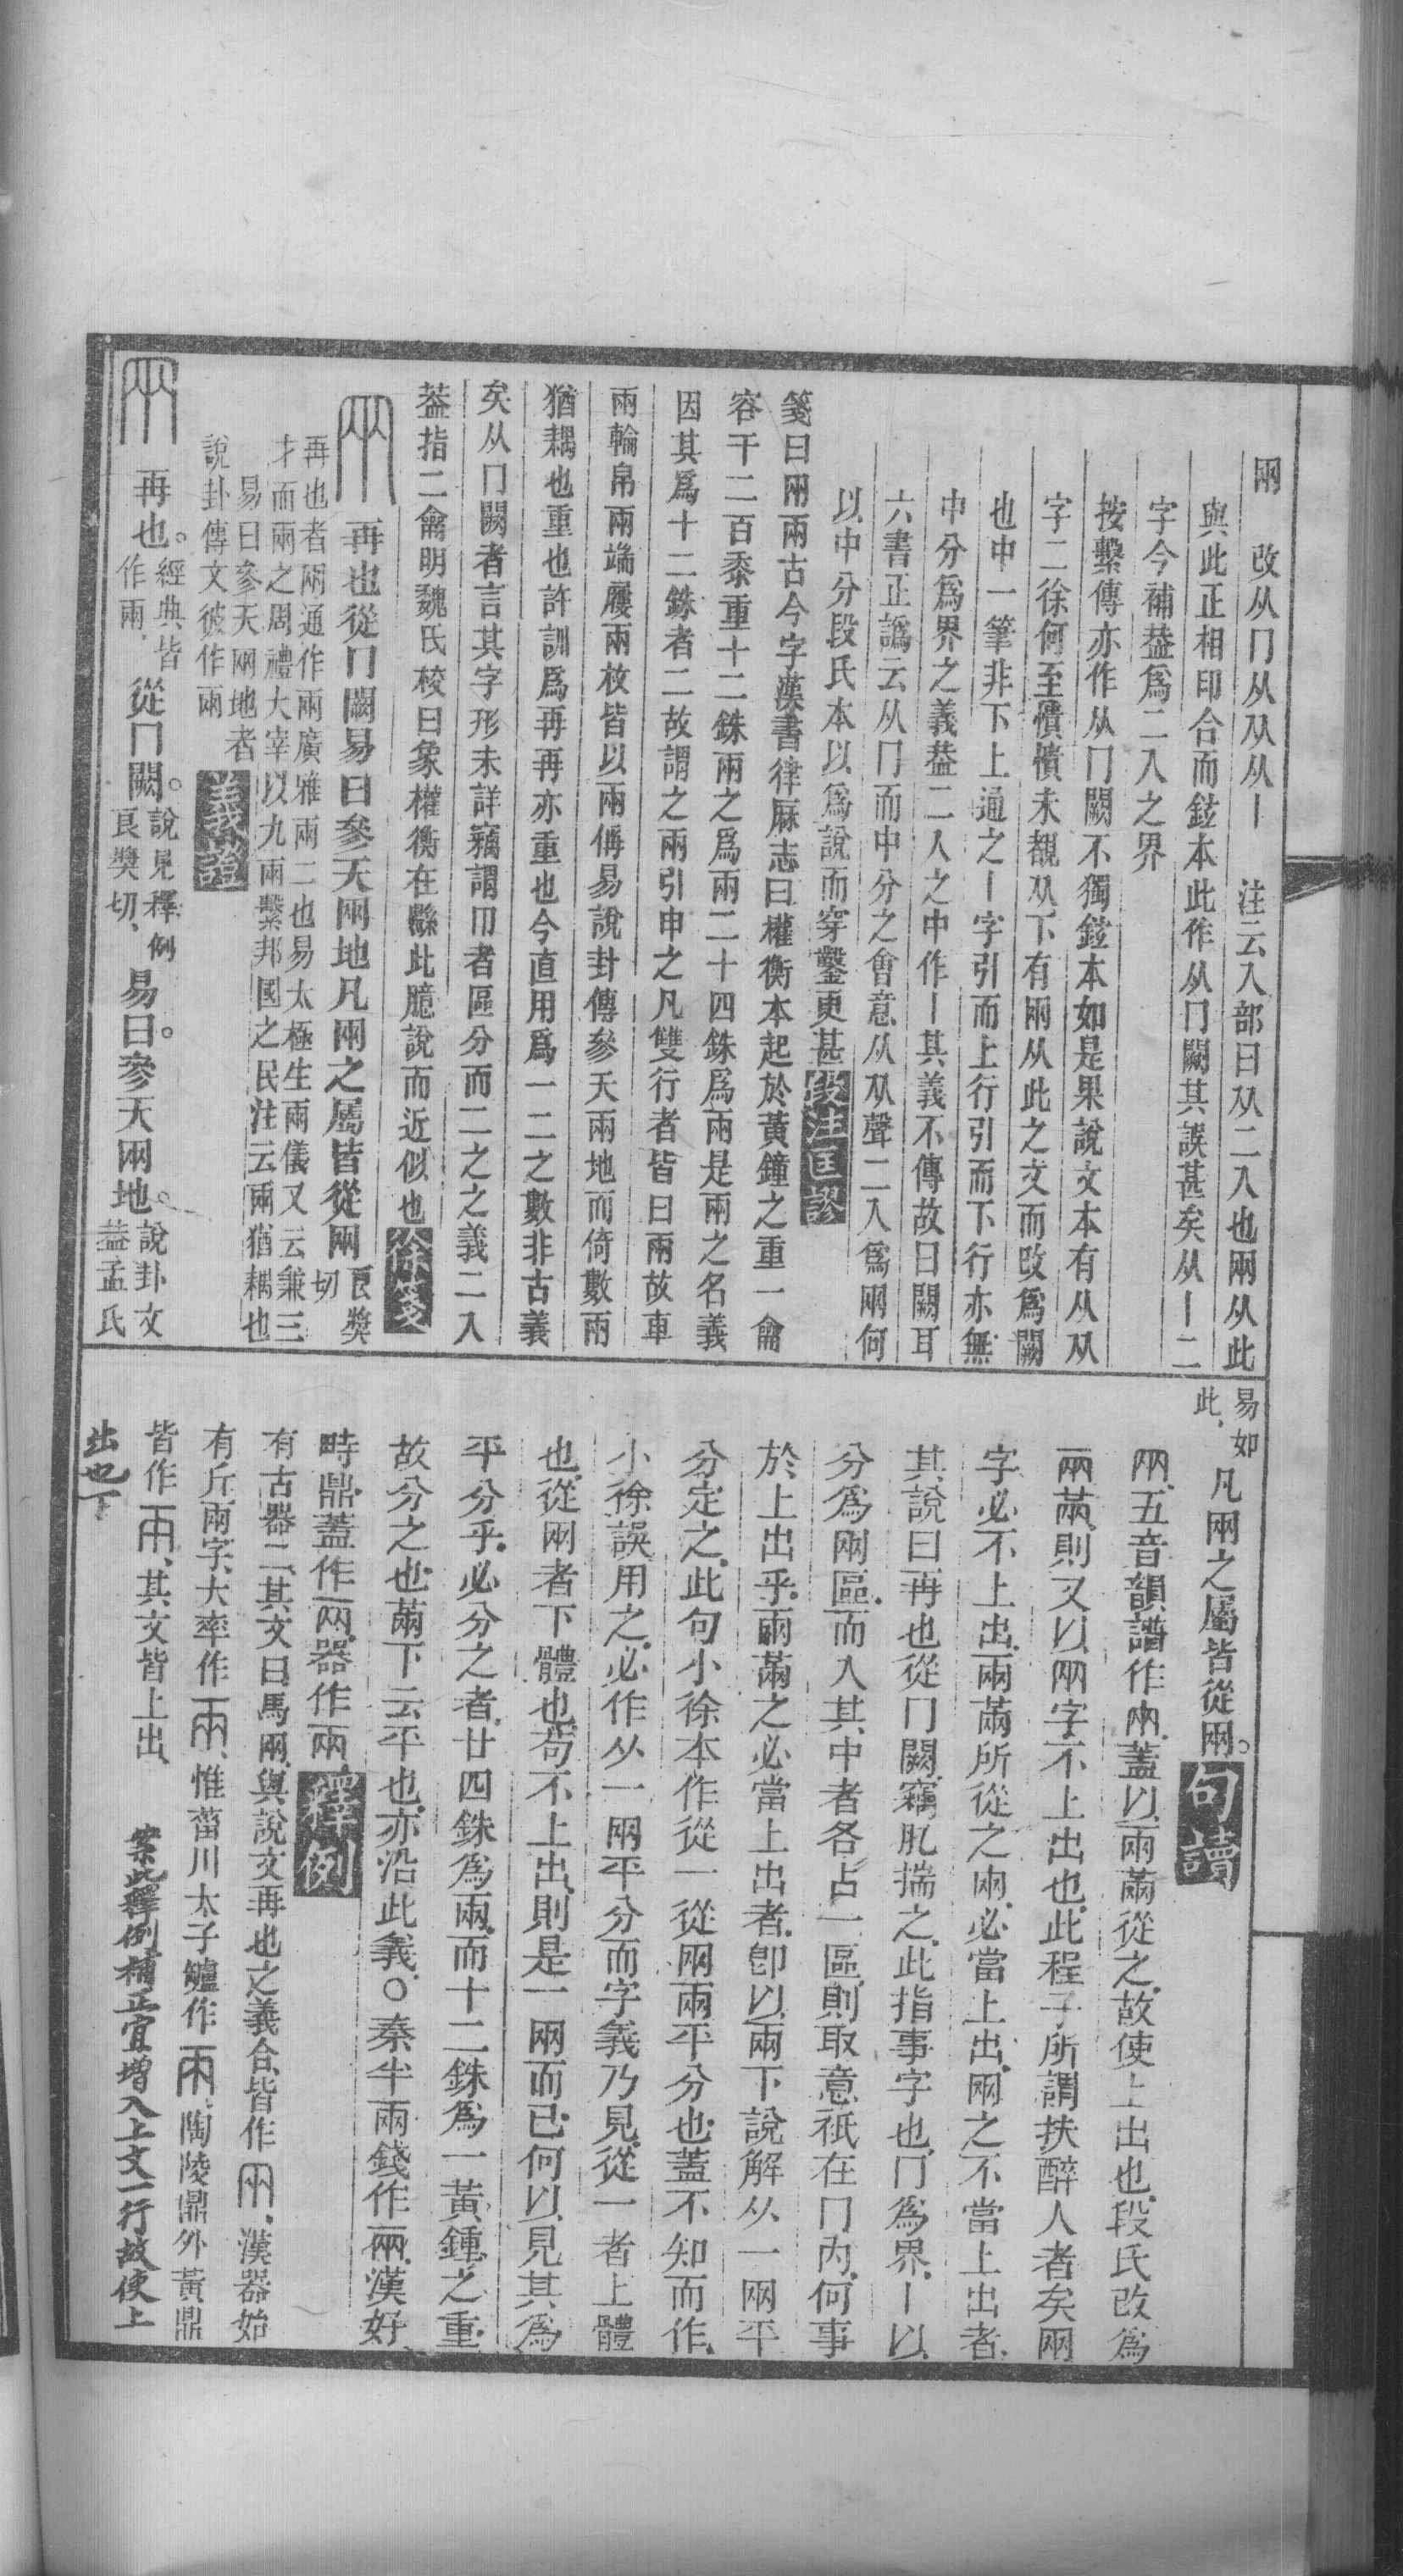 㒳　改从冂从从从丨　注云入部曰从二入也㒳从此
與此正相印合而鉉本此作从冂闕其誤甚矣从丨二
字今補葢爲二入之界
按繫傳亦作从冂闕不獨鉉本如是果說文本有从从
字二徐何至憒憒未覩从下有㒳从此之文而改爲闕
也中一筆非下上通之丨字引而上行引而下行亦無
中分爲界之義葢二人之中作丨其義不傳故曰闕耳
六書正譌云从冂而中分之會意从从聲二入爲㒳何
以中分段氏本以爲說而穿鑿更甚段注匡謬
箋曰㒳兩古今字漢書律厤志曰權衡本起於黃鐘之重一龠
容千二百黍重十二銖兩之爲兩二十四銖爲兩是兩之名義
因其爲十二銖者二故謂之兩引申之凡雙行者皆曰兩故車
兩輪帛兩端屨兩枚皆以兩偁易說卦傳參天兩地而倚數兩
猶耦也重也許訓爲再再亦重也今直用爲一二之數非古義
矣从冂闕者言其字形未詳竊謂㒳者區分而二之之義二入
葢指二龠明魏氏校曰象權衡在縣此臆說而近似也徐箋
㒳再也從冂闕易曰參天㒳地凡㒳之屬皆從㒳良獎切
再也者㒳通作兩廣雅兩二也易太極生兩儀又云兼三
才而兩之周禮大宰以九兩繫邦國之民注云兩猶耦也
易曰參天㒳地者
說卦傳文彼作兩義證
㒳再也。經典皆作兩、從冂闕。說見釋例良獎切、易曰。參天㒳地。說卦文葢孟氏
易如此、凡㒳之屬皆從㒳。句讀
㒳、五音韻譜作㒳、蓋以兩㒼從之、故使上出也、段氏改爲
兩㒼、則又以㒳字不上出也、此程子所謂扶醉人者矣㒳
字必不上出、兩㒼所從之㒳、必當上出、㒳之不當上出者、
其說曰再也從冂闕、竊肊揣之、此指事字也、冂爲界、丨以
分爲㒳區、而入其中者各占一區、則取意祇在冂內、何事
於上出乎、兩㒼之必當上出者、卽以兩下說解从一㒳平
分定之、此句小徐本作從一從㒳㒳平分也、蓋不知而作、
小徐誤用之、必作从一㒳平分而字義乃見、從一者上體
也、從㒳者下體也、苟不上出、則是一㒳而已、何以見其爲
平分乎、必分之者、廿四銖爲兩、而十二銖爲一黃鍾之重、
故分之也、㒼下云平也、亦沿此義、○秦半兩錢作兩、漢好
畤鼎蓋作㒳、器作兩、釋例
有古器二、其文曰馬㒳、與說文再也之義合、皆作㒳、漢器始
有斤兩字、大率作兩、惟菑川太子鑪作兩、陶陵鼎外黃鼎
皆作兩、其文皆上出、　案此釋例補正宜增入上文一行故使上
出也下